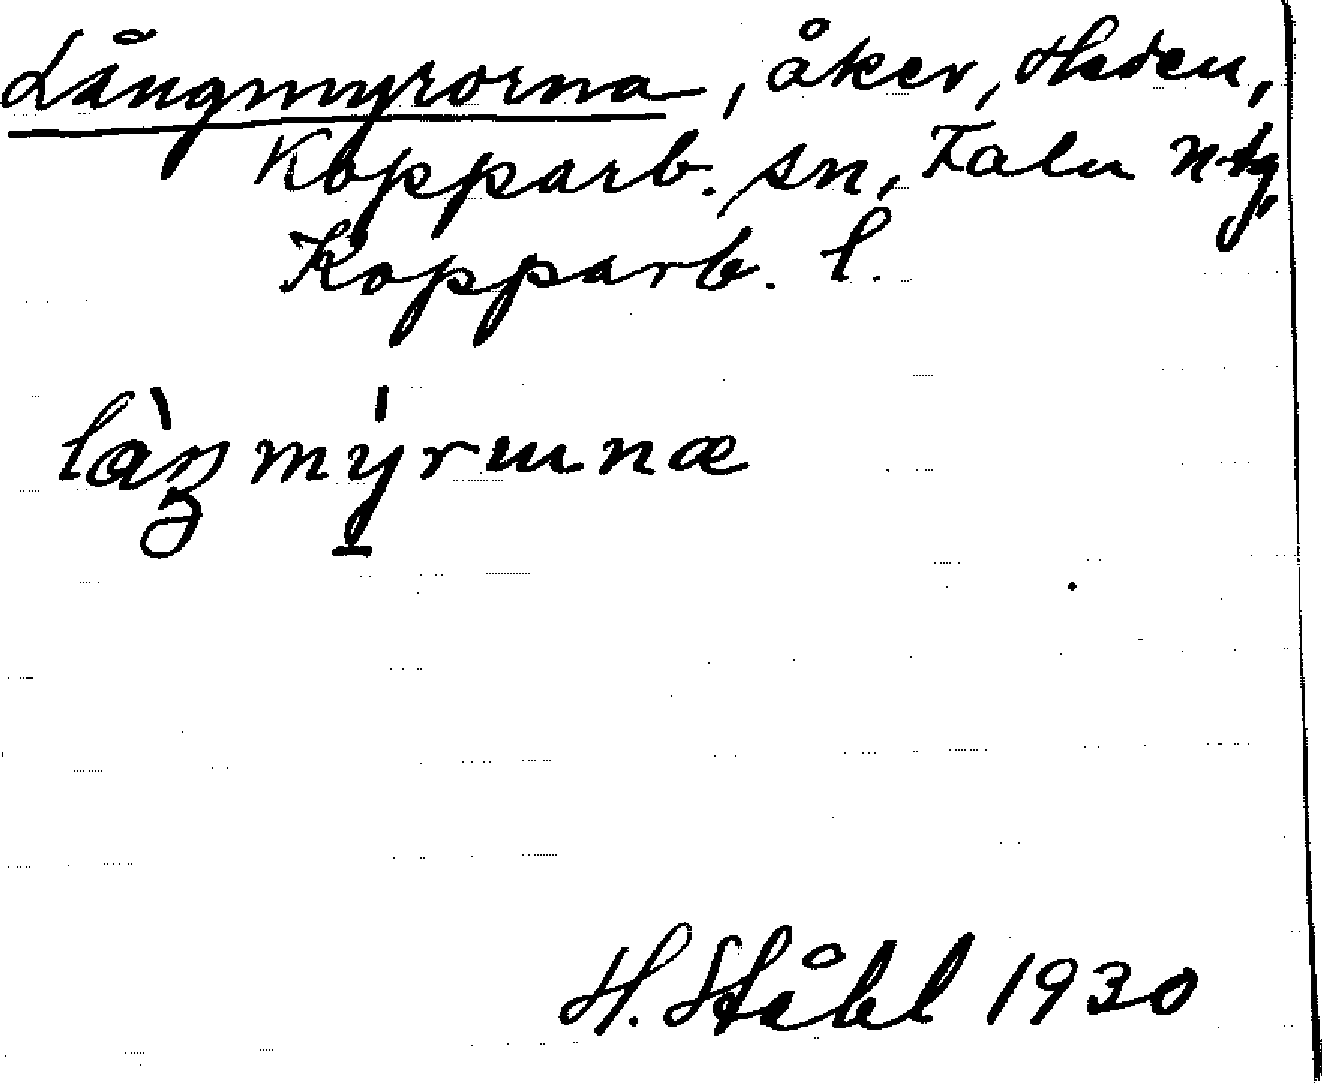 Långmyrorna, åker, Heden,
Kopparb. sn, Falu ntg,
Kopparb. l.
làŋmýrɯnæ
H. Ståhl 1930